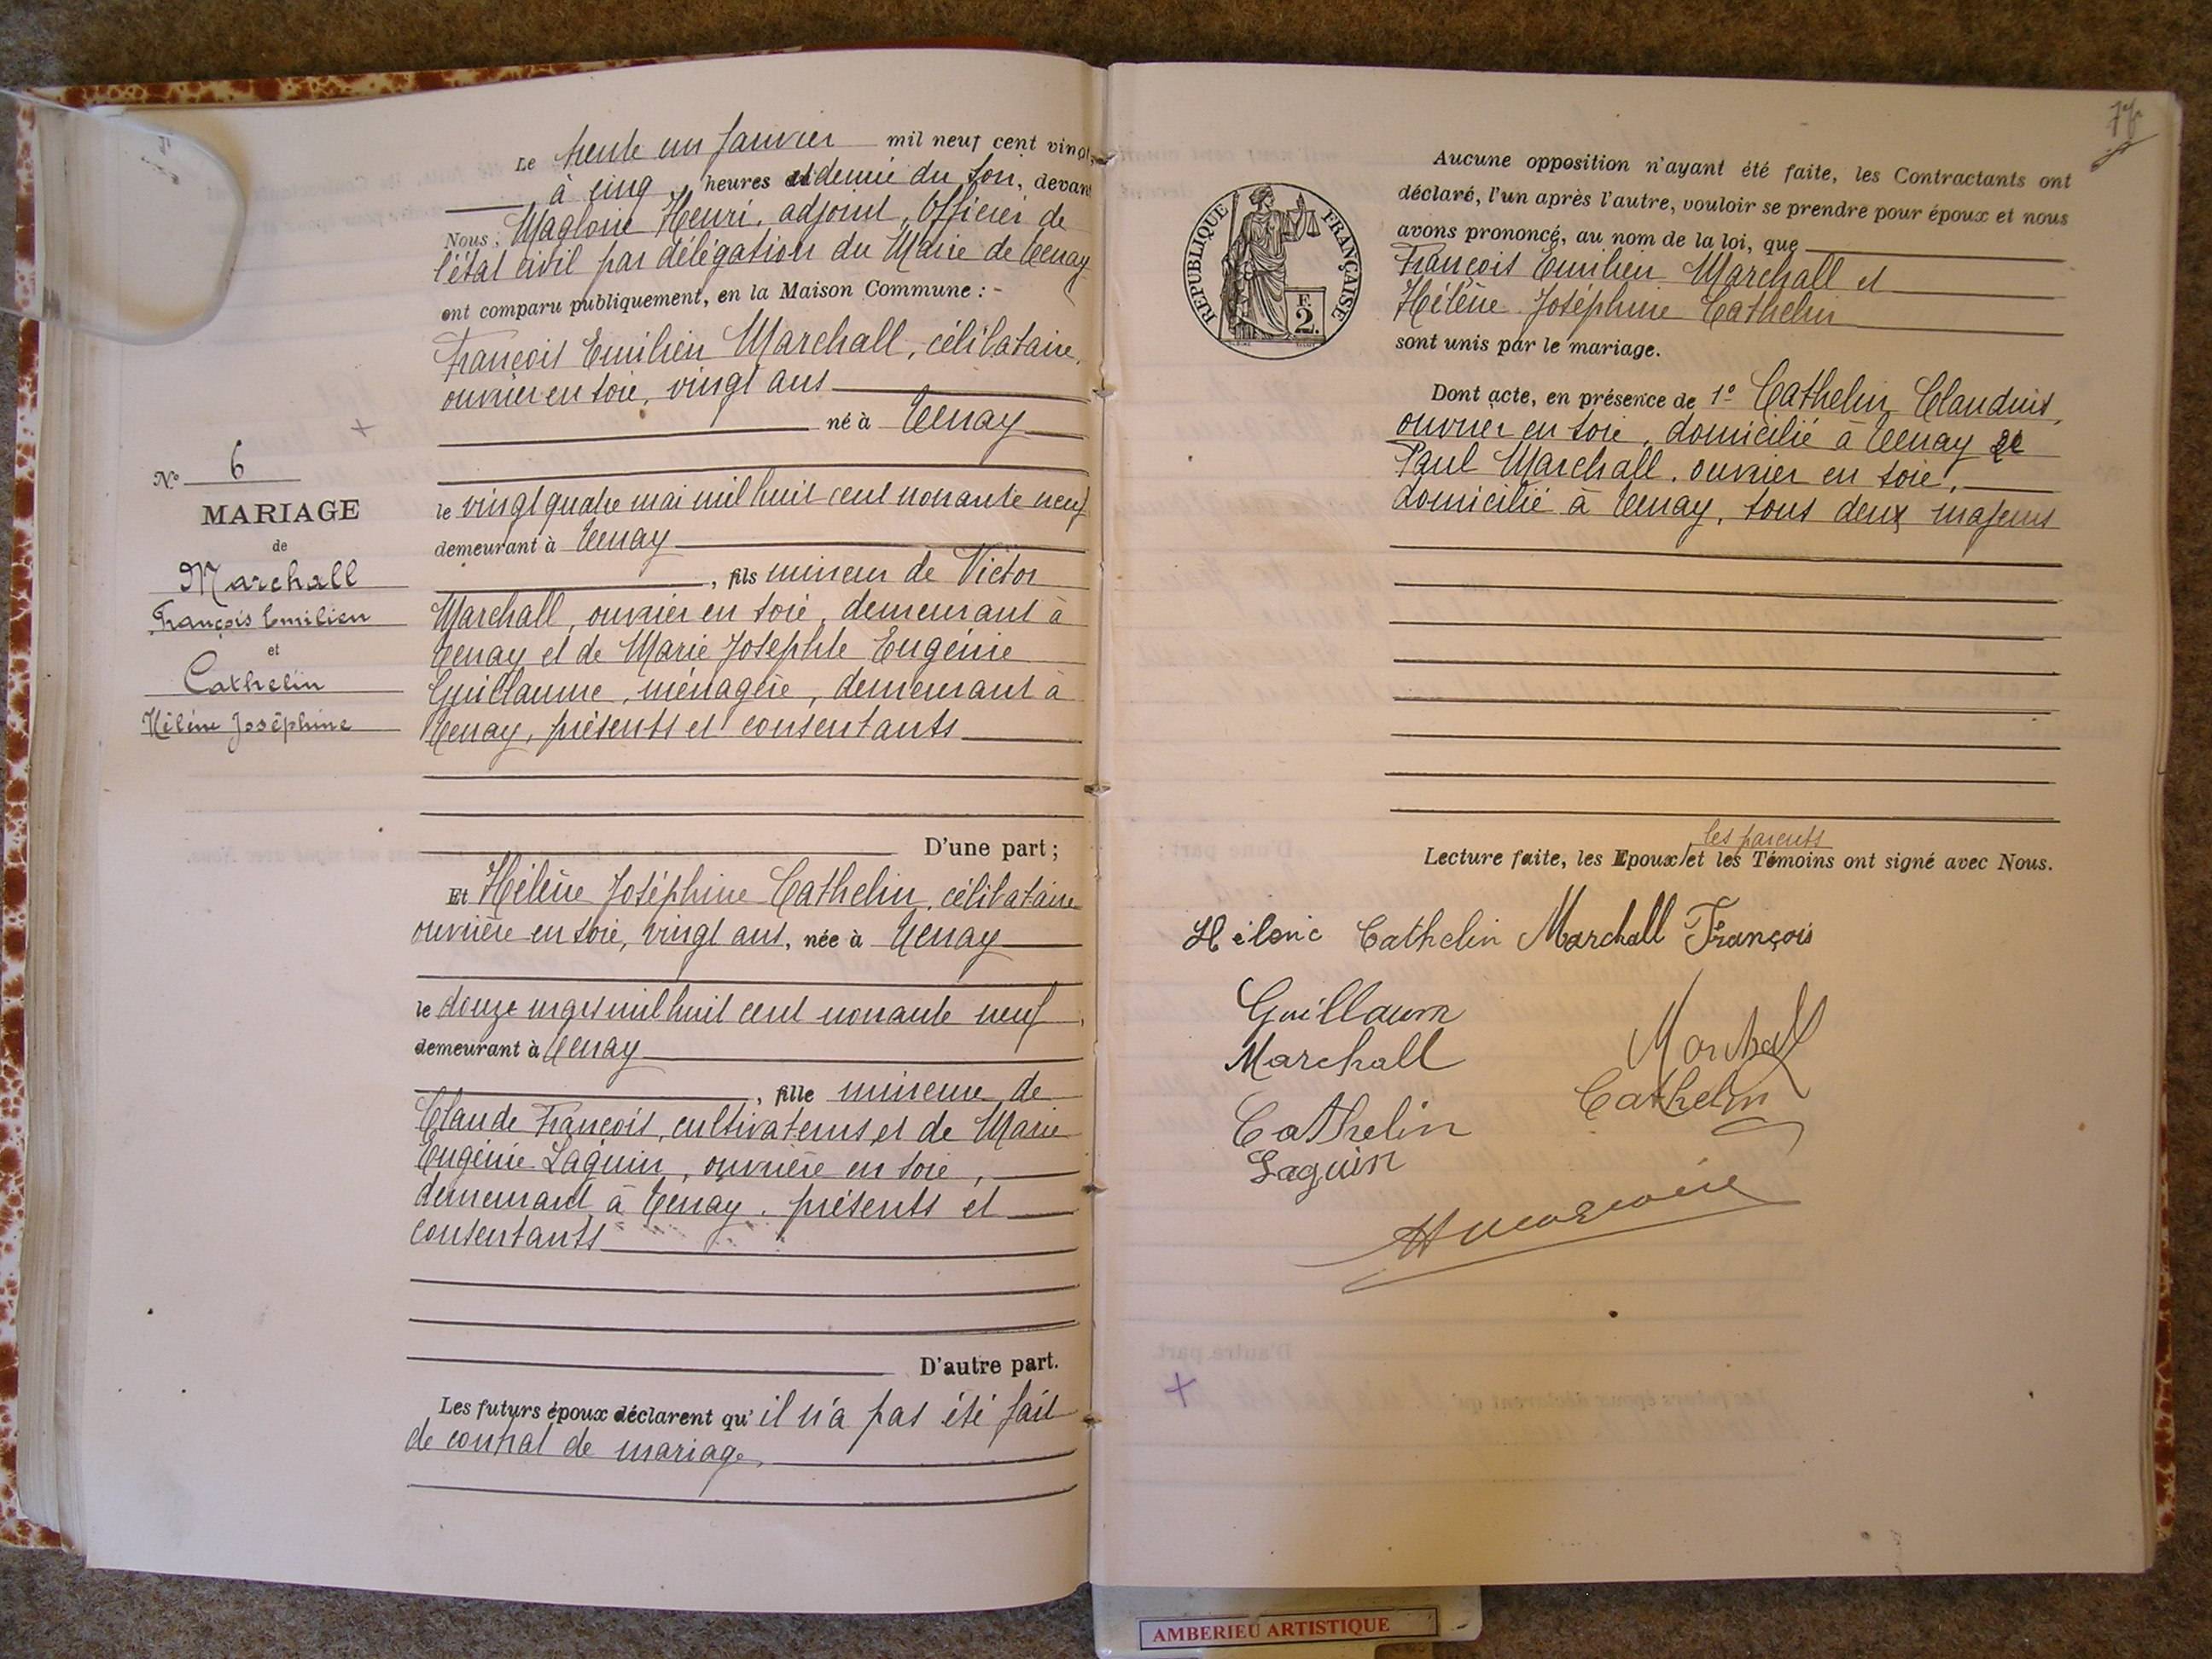 Le trente un Janvier mil neuf cent vingt,
à cinq heures et demie du soir, devant
Nous, Magloire Henri, adjoint, Officier de
l'état civil par délégation du Maire de Tenay
ont comparu publiquement, en la Maison Commune : -
François Emilien Marchall, célibataire,
ouvrier en soie, vingt ans
né à Tenay
le vingt quatre mai mil huit cent nonante neuf
demeurant à Tenay
, fils mineur de Victor
Marchall, ouvrier en soie, demeurant à
Tenay et de Marie Josephte Eugénie
Guillaume, ménagère, demeurant à
Tenay, présents et consentants
D'une part ;
Et Hélène Joséphine Cathelin, célibataire
ouvrière en soie, vingt ans, née à Tenay
le douze mars mil huit cent nonante neuf,
demeurant à Tenay
, fille mineure de
Claude François, cultivateurs et de Marie
Eugénie Laguin, ouvrière en soie,
demeurant à Tenay. présents et
consentants
D'autre part.
Les futurs époux déclarent qu'il n'a pas été fait
de contrat de mariage.
N° 6
MARIAGE
de
Marchall
François Emilien
et
Cathelin
Hélène Joséphine
REPUBLIQUE FRANÇAISE
F.
2.
Aucune opposition n'ayant été faite, les Contractants ont
déclaré, l'un après l'autre, vouloir se prendre pour époux et nous
avons prononcé, au nom de la loi, que
François Emilien Marchall et
Hélène Joséphine Cathelin
sont unis par le mariage.
Dont acte, en présence de 1° Cathelin Claudius,
ouvrier en soie, domicilié à Tenay 2°
Paul Marchall, ouvrier en soie,
domicilié à Tenay, tous deux majeurs
les parents
Lecture faite, les Epoux et les Témoins ont signé avec Nous.
Hélène Cathelin Marchall François
Guillaum
Marchall
Marchall
Cathelin
Cathelin
Laguin
AMBERIEU ARTISTIQUE